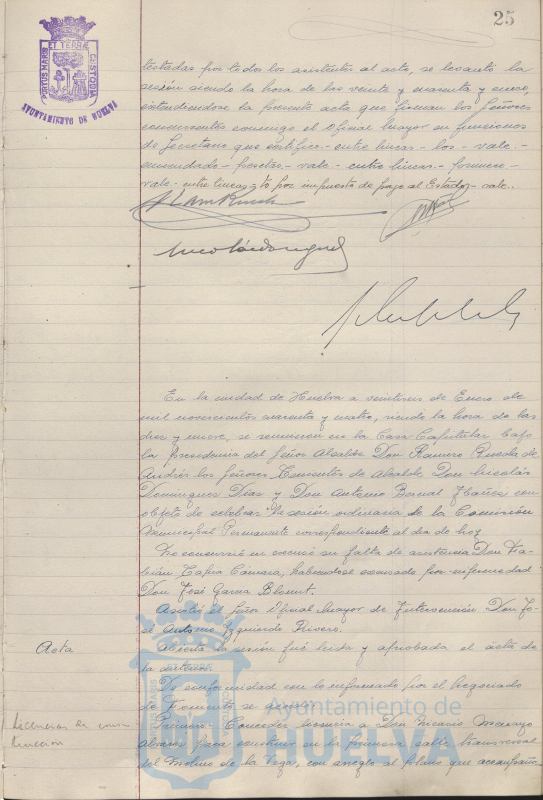 25
PORTUS MARIS ET TERRÆ CUSTODIA
AYUNTAMIENTO DE HUELVA
testadas por todos los asistentes al acto, se levantó la
sesión siendo la hora de las veinte y cuarenta y cinco,
extendiendose la presente acta que firman los Señores
concurrentes conmigo el Oficial Mayor en funciones
de Secretario que certifico.- entre lineas - los - vale.-
enmendado - pesetas.- vale - entre lineas.- primero -
vale.- entre lineas - por impuesto de pago al Estado - vale.
En la ciudad de Huelva a veintiseis de Enero de
mil novecientos cuarenta y cuatro, siendo la hora de las
diez y nueve, se reunieron en la Casa Capitular bajo
la Presidencia del Señor Alcalde Don Ramiro Rueda de
Andrés los Señores Tenientes de Alcalde Don Nicolás
Dominguez Diaz y Don Antonio Bernal Ibañez con
objeto de celebrar la sesión ordinaria de la Comisión
Municipal Permanente correspondiente al dia de hoy
No concurrió ni excusó su falta de asistencia Don Fa-
bián Tapia Cámara, habiendose excusado por enfermedad
Don José Garcia
Asistió el Señor Oficial Mayor de Intervención Don Jo-
sé Antonio Izquierdo Rivero.
Acta
Abierta la sesión fué leida y aprobada el acta de
la anterior.
De conformidad con lo informado por el Negociado
de Fomento se acordó:
Licencias de cons-
truccion
Primero: Conceder licencia a Don
Alvarez para construir en la primera calle transversal
del Molino de la Vega, con arreglo al plano que acompaña
Ayuntamiento de
HUELVA